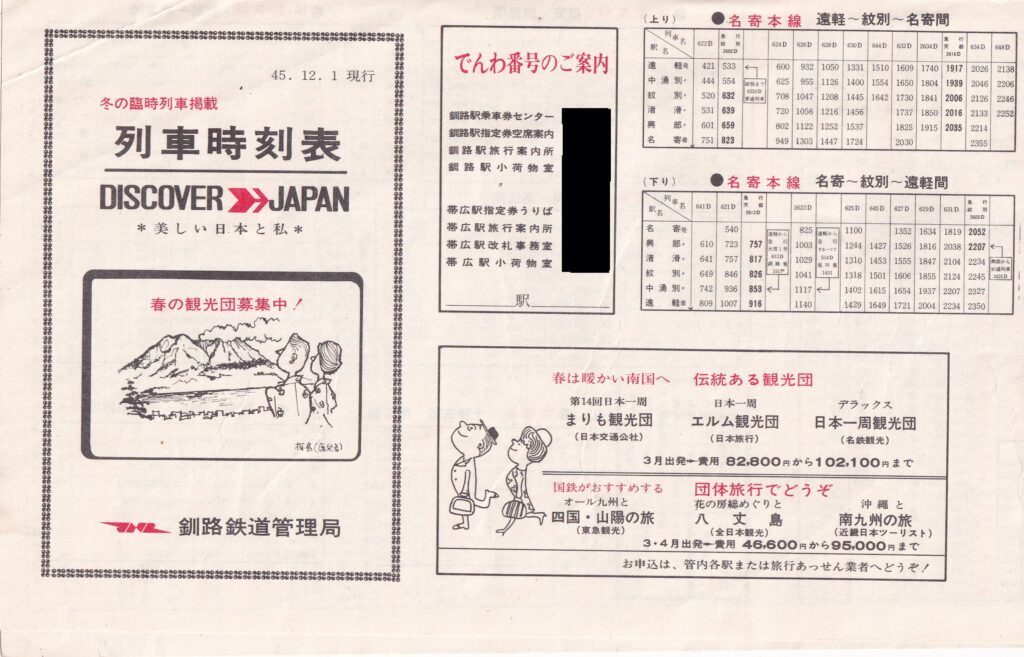 45.12.1 現行
冬の臨時列車掲載
列車時刻表
DISCOVER JAPAN
*美しい日本と私*
春の観光団募集中！
釧路鉄道管理局
でんわ番号のご案内
釧路駅乗車券センター
釧路駅指定券空席案内
釧路駅旅行案内所
釧路駅小荷物室
〃
帯広駅指定券うりば
帯広駅旅行案内所
帯広駅改札事務室
帯広駅小荷物室
駅
(上り) ●名寄本線 遠軽～紋別～名寄間
駅名 列車名 622D 急行 紋別 2602D 624D 626D 628D 630D 644D 632D 2634D 急行 天都 2616D 634D 646D
遠軽発 421 533 600 932 1050 1331 1510 1609 1740 1917 2026 2138
中湧別〃 444 554 625 955 1126 1400 1554 1650 1804 1939 2046 2206
紋別〃 520 632 708 1047 1208 1445 1642 1730 1841 2006 2126 2246
渚滑〃 531 639 720 1056 1216 1456 1737 1850 2016 2133 2252
興部〃 601 659 802 1122 1252 1537 1825 1915 2035 2214
名寄着 751 823 949 1303 1447 1724 2030 2355
(下り) ●名寄本線 名寄～紋別～遠軽間
駅名 列車名 641D 621D 急行 天都 2613D 2623D 625D 645D 627D 629D 631D 急行 紋別 2605D
名寄発 540 825 1100 1352 1634 1819 2052
興部〃 610 723 757 1003 1244 1427 1526 1816 2038 2207
渚滑〃 641 757 817 1029 1310 1453 1555 1847 2104 2234
紋別〃 649 846 826 1041 1318 1501 1606 1855 2124 2245
中湧別〃 742 936 853 1117 1402 1615 1654 1937 2207 2327
遠軽着 809 1007 916 1140 1429 1649 1721 2004 2234 2350
春は暖かい南国へ 伝統ある観光団
第14回日本一周 日本一周 デラックス
まりも観光団 エルム観光団 日本一周観光団
(日本交通公社) (日本旅行) (名鉄観光)
3月出発ー費用 82,800円から102,100円まで
国鉄がおすすめする 団体旅行でどうぞ
オール九州と 花の房総めぐりと 沖縄と
四国・山陽の旅 八丈島 南九州の旅
(東急観光) (全日本観光) (近畿日本ツーリスト)
3・4月出発ー費用 46,600円から95,000円まで
お申込は、管内各駅または旅行あっせん業者へどうぞ！